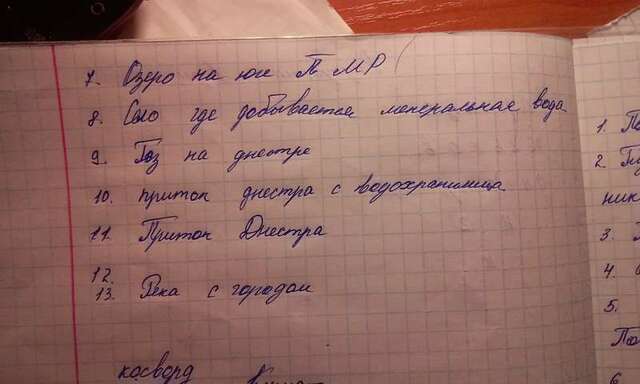 7. Озеро на юге ПМР
8. Село где добывается менеральная вода
9. Газ на днестре
10. приток днестра с водохранилища
11. Приток Днестра
12.
13. Река с городом
косворд
1. По
2.
ник
3.
4.
5.
По
6